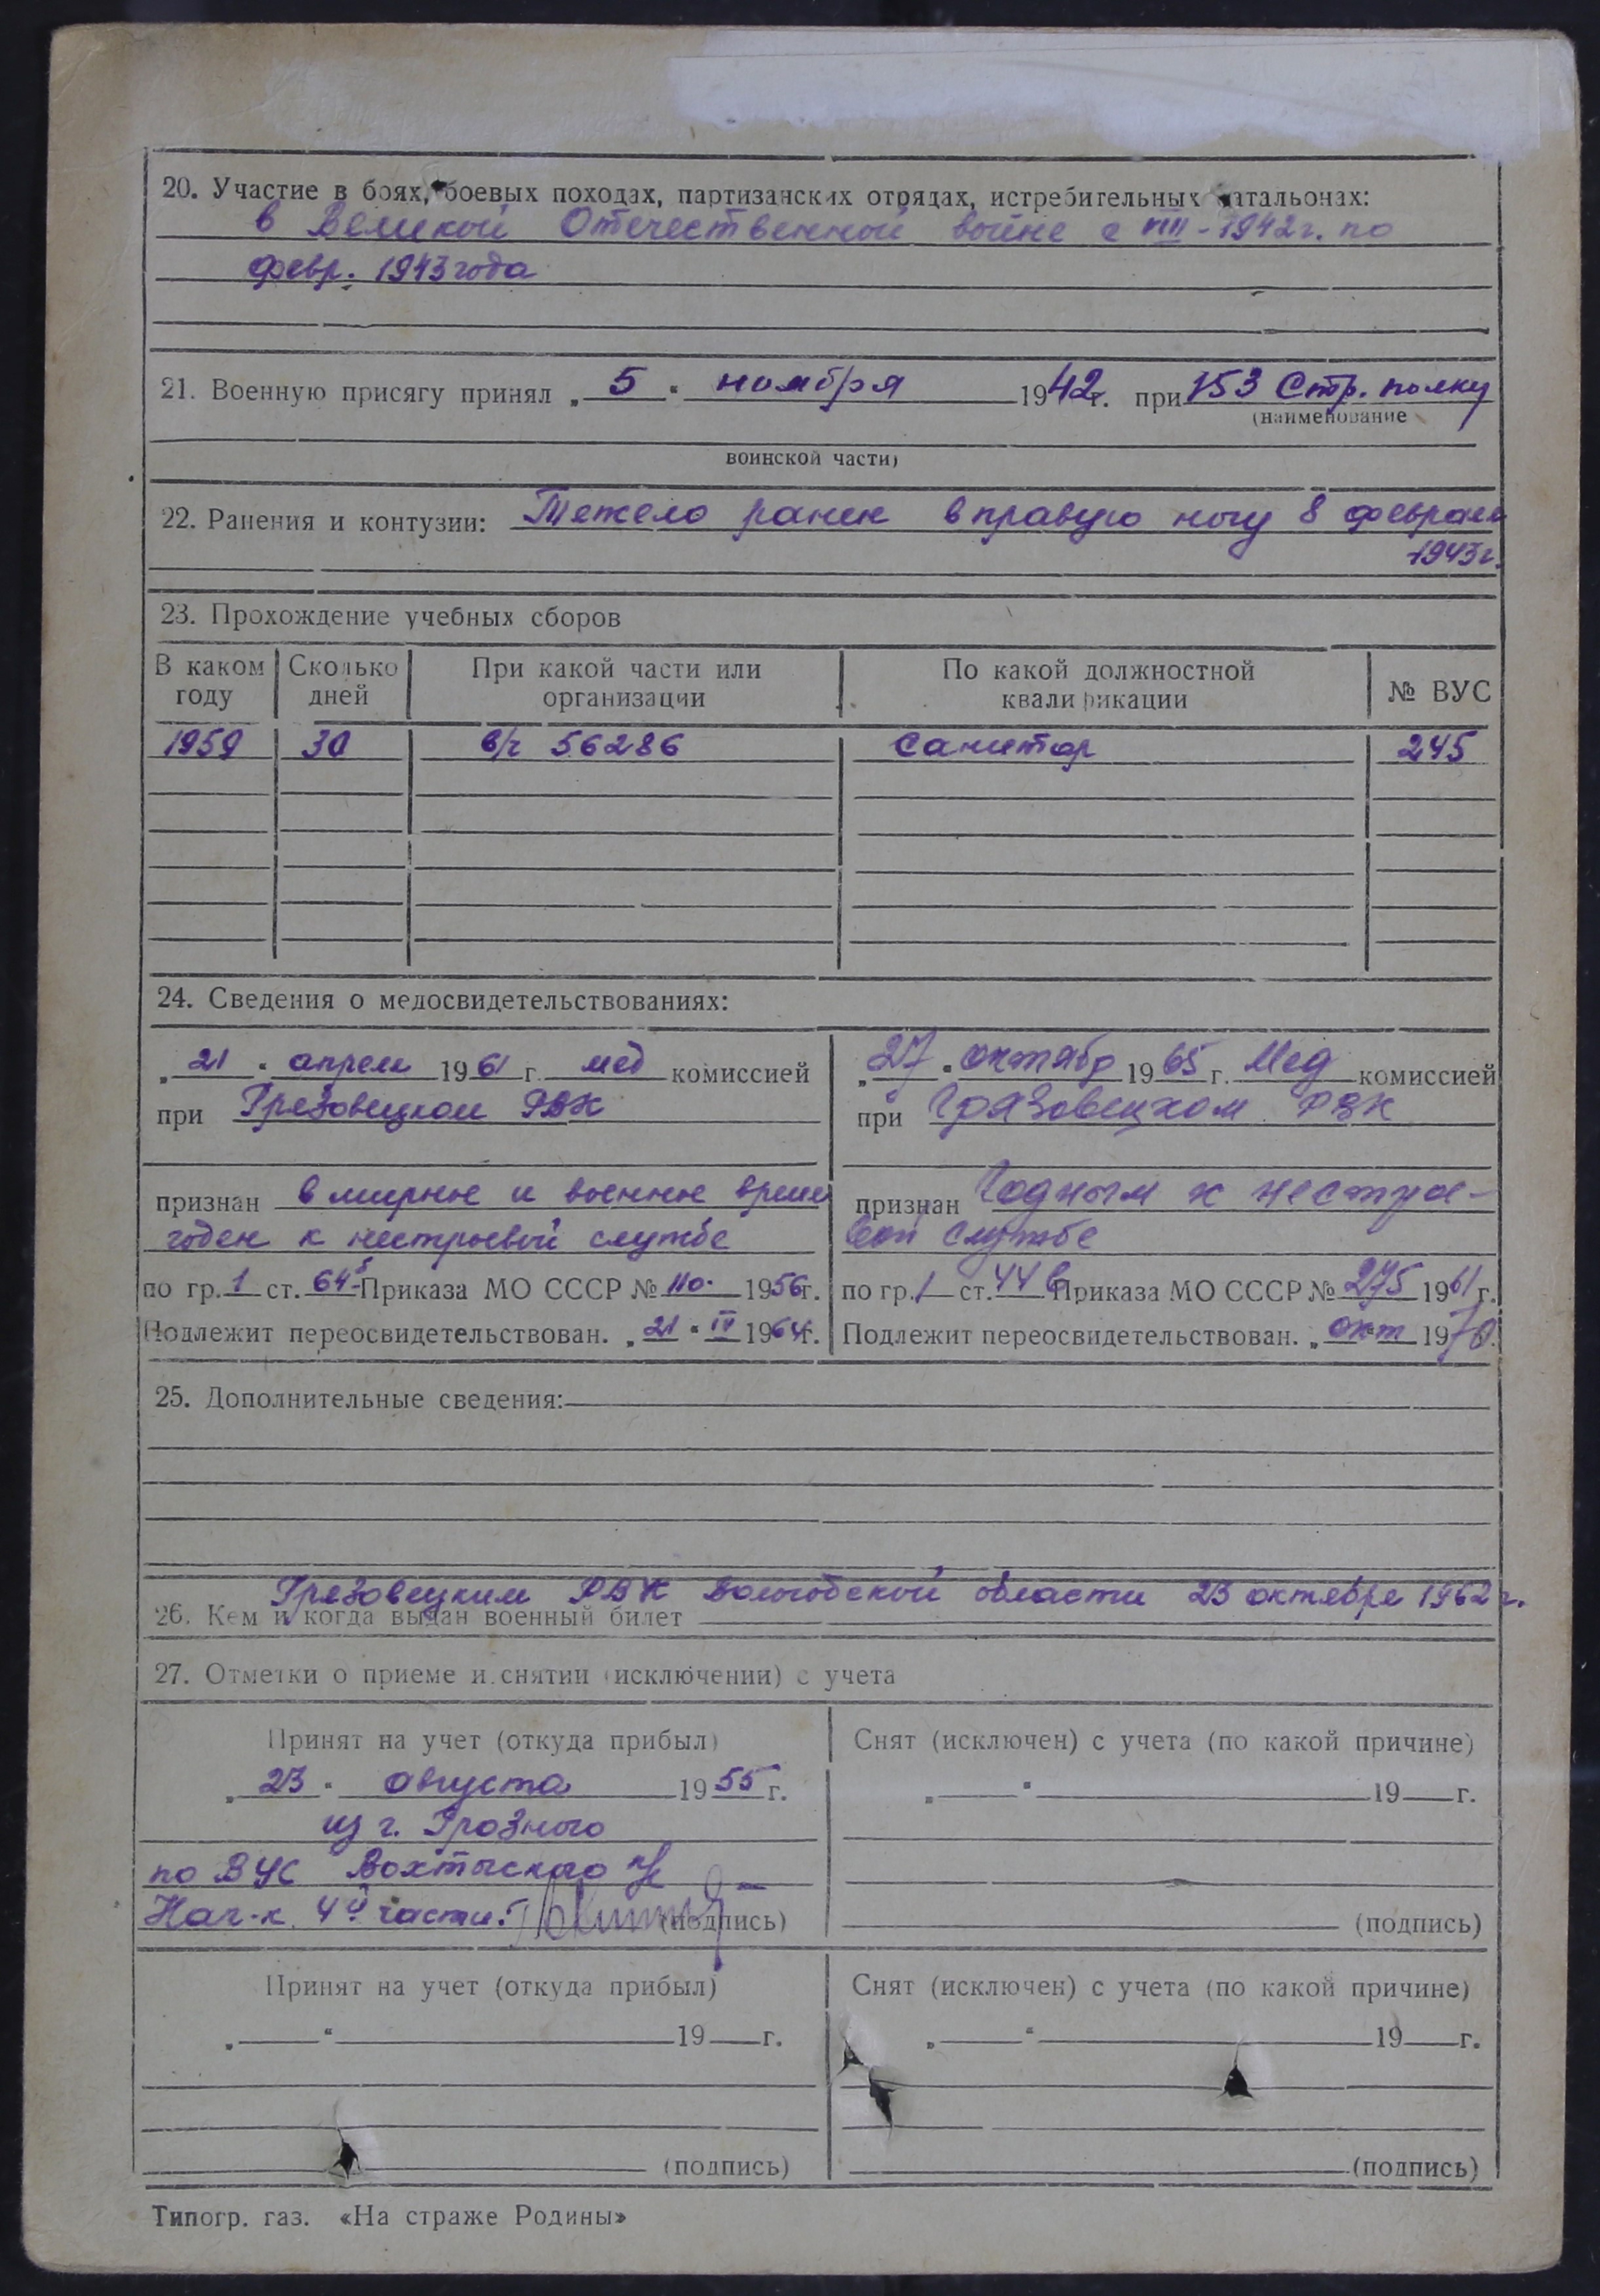 20. Участие в боях, боевых походах, партизанских отрядах, истребительных батальонах:
в Великой Отечественной войне с VIII-1942г. по
февр. 1943 года
21. Военную присягу принял „5“ ноября 1942г. при 153 Стр. полку
(наименование
воинской части)
22. Ранения и контузии: Тежело ранен в правую ногу 8 февраля
1943г.
23. Прохождение учебных сборов
В каком году Сколько дней При какой части или организации По какой должностной квалификации № ВУС
1959 30 в/ч 56286 Санитар 245
24. Сведения о медосвидетельствованиях:
„21“ апреля 1961 г. мед комиссией
при Грезовецком РВК
признан в мирное и военное время
годен к нестроевой службе
по гр. 1 ст. 64 Приказа МО СССР № 110. 1956г.
Подлежит переосвидетельствован. „21“ IV 1964г.
„27“ октябр 1965 г. Мед комиссией
при Грязовецком РВК
признан Годным к нестрое-
вой службе
по гр. 1 ст. 44 в Приказа МО СССР № 275 1961 г.
Подлежит переосвидетельствован. „окт 1970.
25. Дополнительные сведения:
Грезовецким РВК Вологодской области 23 октября 1962 г.
26. Кем и когда выдан военный билет
27. Отметки о приеме и снятии (исключении) с учета
Принят на учет (откуда прибыл)
„23“ августа 1955 г.
из г. Грозного
по ВУС Вохтыского
Нач-к 4й части: (подпись)
Снят (исключен) с учета (по какой причине)
„ “ 19 г.
(подпись)
Принят на учет (откуда прибыл)
„ “ 19 г.
(подпись)
Снят (исключен) с учета (по какой причине)
„ “ 19 г.
(подпись)
Типогр. газ. «На страже Родины»